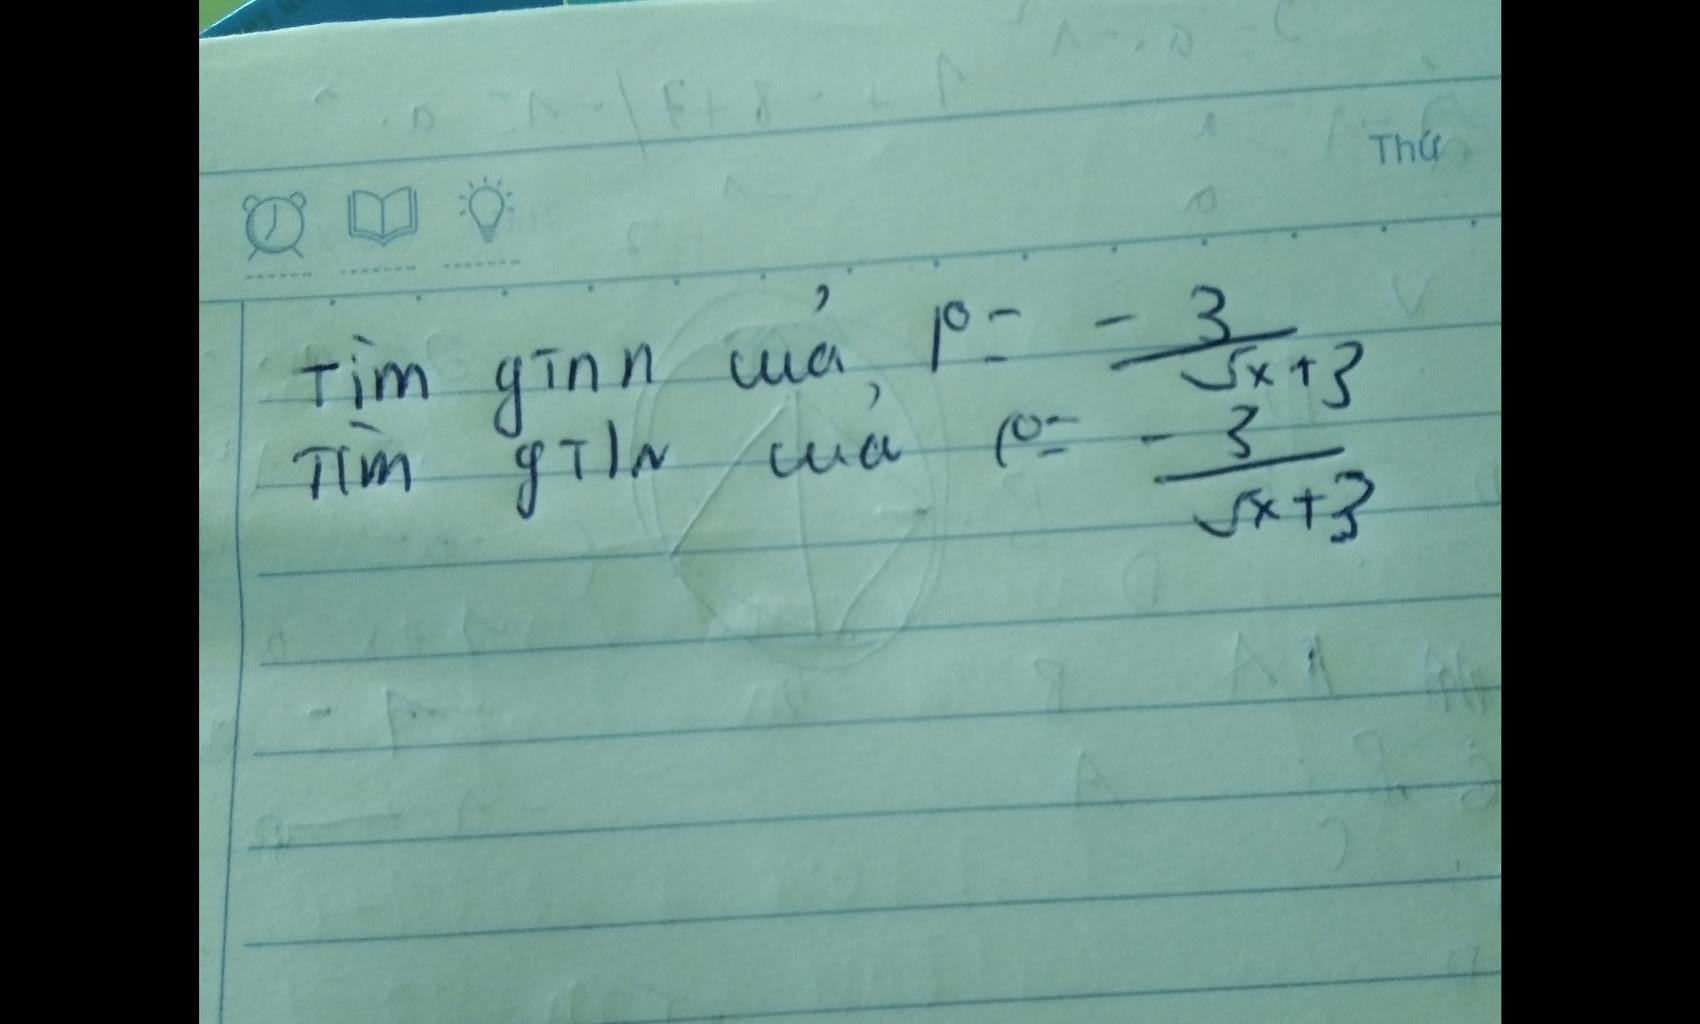 Thứ
Tìm gTNN của P = -3/(√x+3)
Tìm gTLN của P = -3/(√x+3)